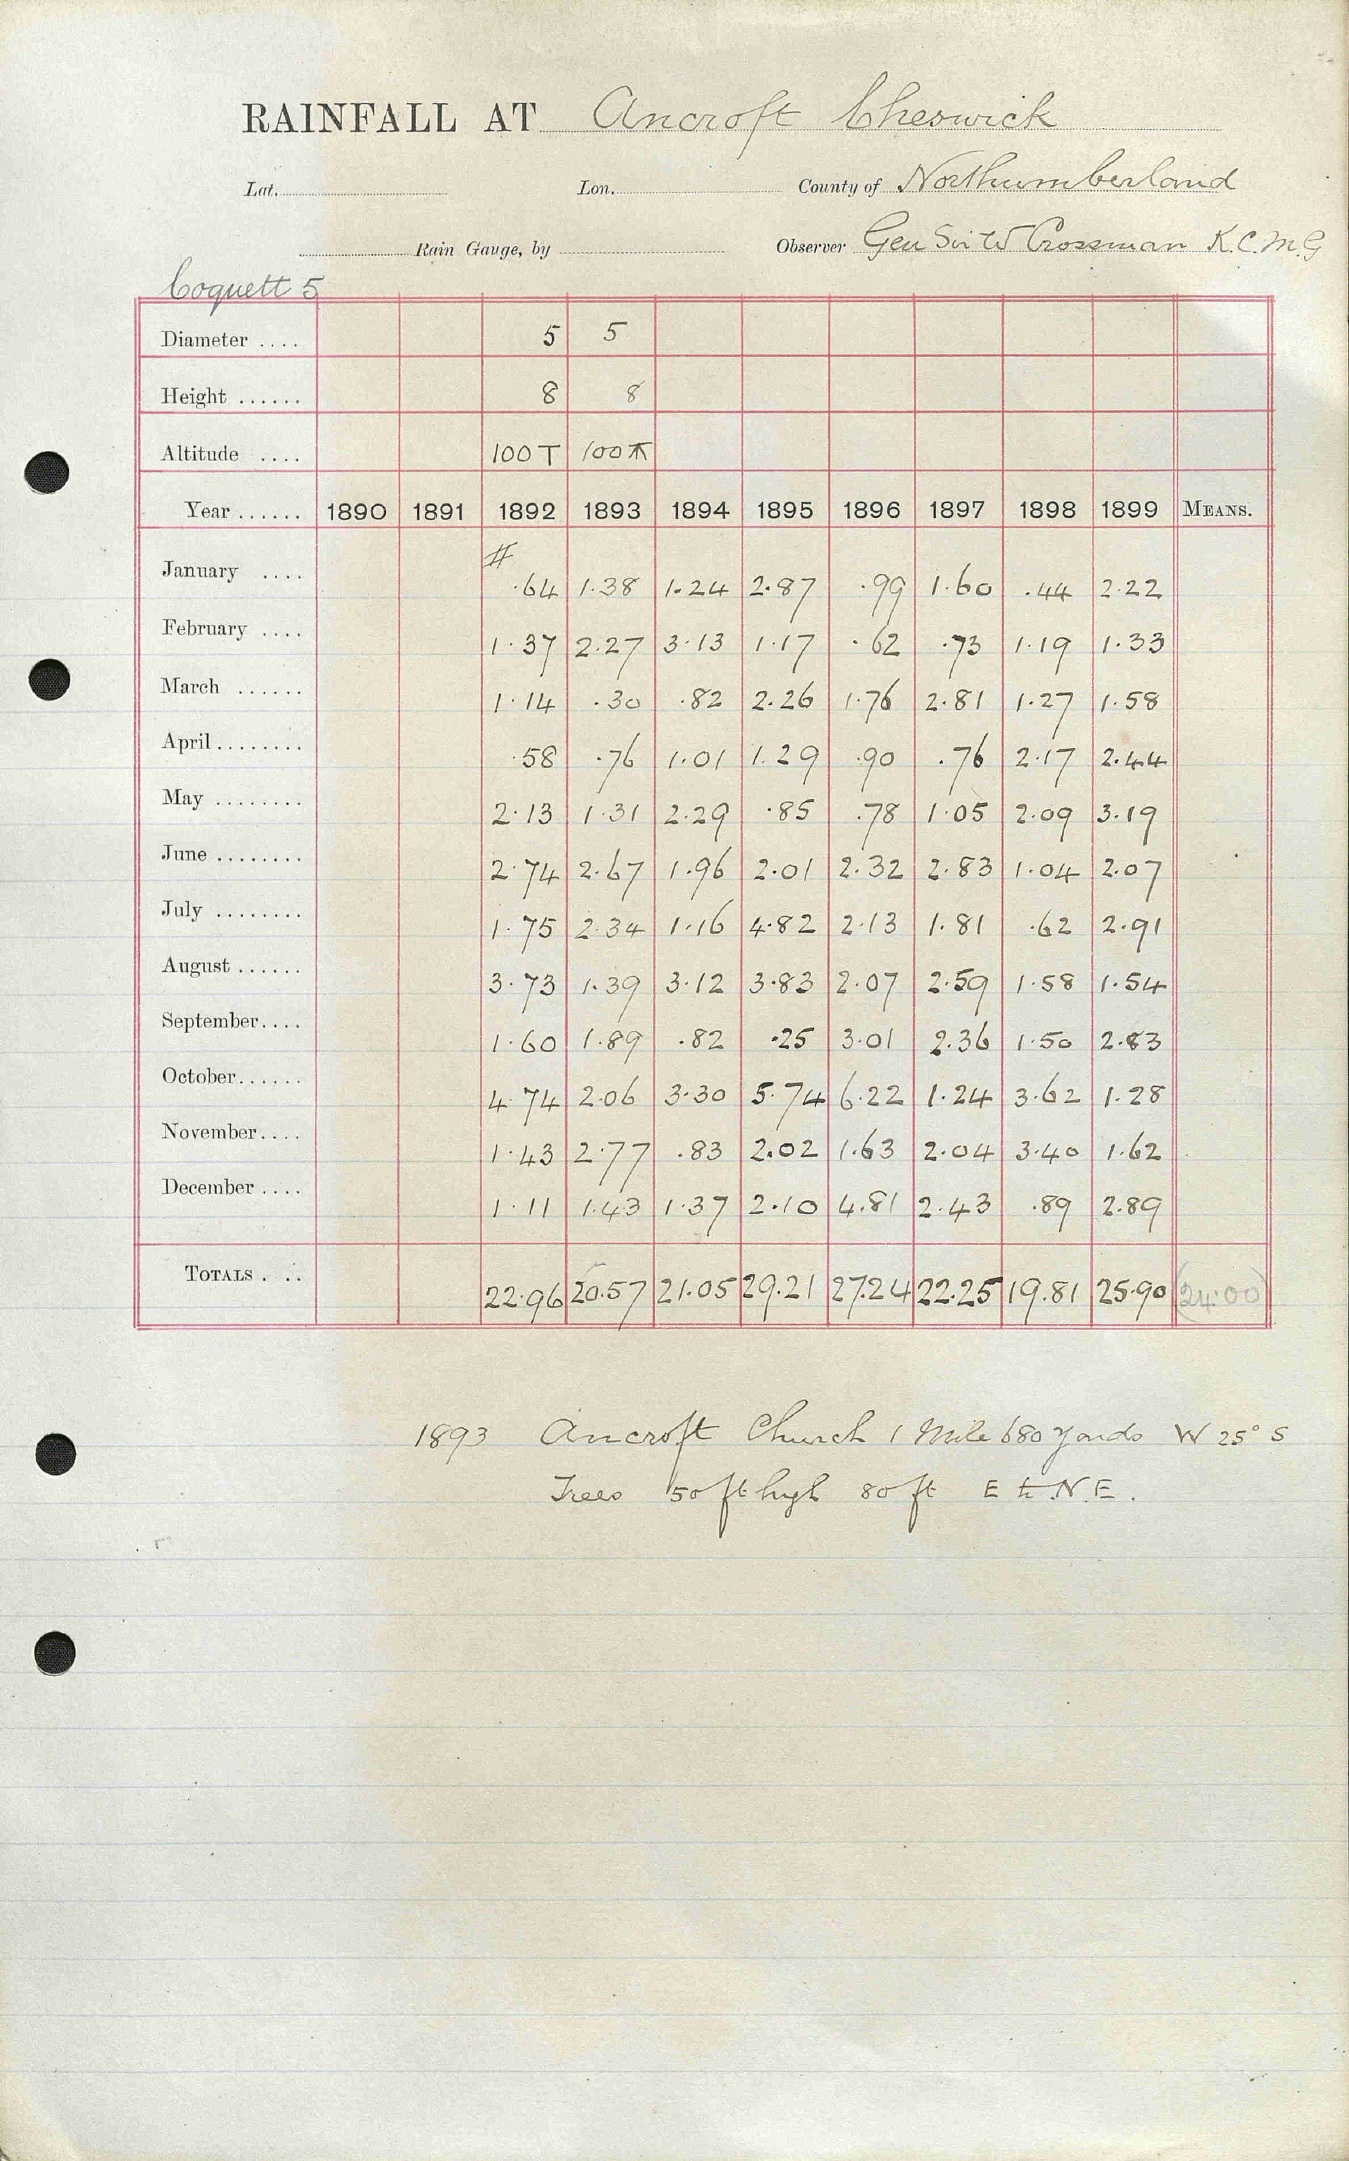 RAINFALL AT Ancroft Cheswick
Lat. Lon. County of Northumberland
Rain Gauge, by Observer Gen Sir W Crossman K.C.M.G
Coquett 5
Diameter .... 5 5
Height ...... 8 8
Altitude .... 100 T 100
Year ...... 1890 1891 1892 1893 1894 1895 1896 1897 1898 1899 MEANS.
#
January .... .64 1.38 1.24 2.87 .99 1.60 .44 2.22
February .... 1.37 2.27 3.13 1.17 .62 .73 1.19 1.33
March ...... 1.14 .30 .82 2.26 1.76 2.81 1.27 1.58
April ........ .58 .76 1.01 1.29 .90 .76 2.17 2.44
May ........ 2.13 1.31 2.29 .85 .78 1.05 2.09 3.19
June ........ 2.74 2.67 1.96 2.01 2.32 2.83 1.04 2.07
July ........ 1.75 2.34 1.16 4.82 2.13 1.81 .62 2.91
August ...... 3.73 1.39 3.12 3.83 2.07 2.59 1.58 1.54
September.... 1.60 1.89 .82 .25 3.01 2.36 1.50 2.83
October...... 4.74 2.06 3.30 5.74 6.22 1.24 3.62 1.28
November.... 1.43 2.77 .83 2.02 1.63 2.04 3.40 1.62
December .... 1.11 1.43 1.37 2.10 4.81 2.43 .89 2.89
TOTALS . .. 22.96 20.57 21.05 29.21 27.24 22.25 19.81 25.90 (24.00)
1893 Ancroft Church 1 Mile 680 Yards W 25° S
Trees 50 ft high 80 ft E to N.E.